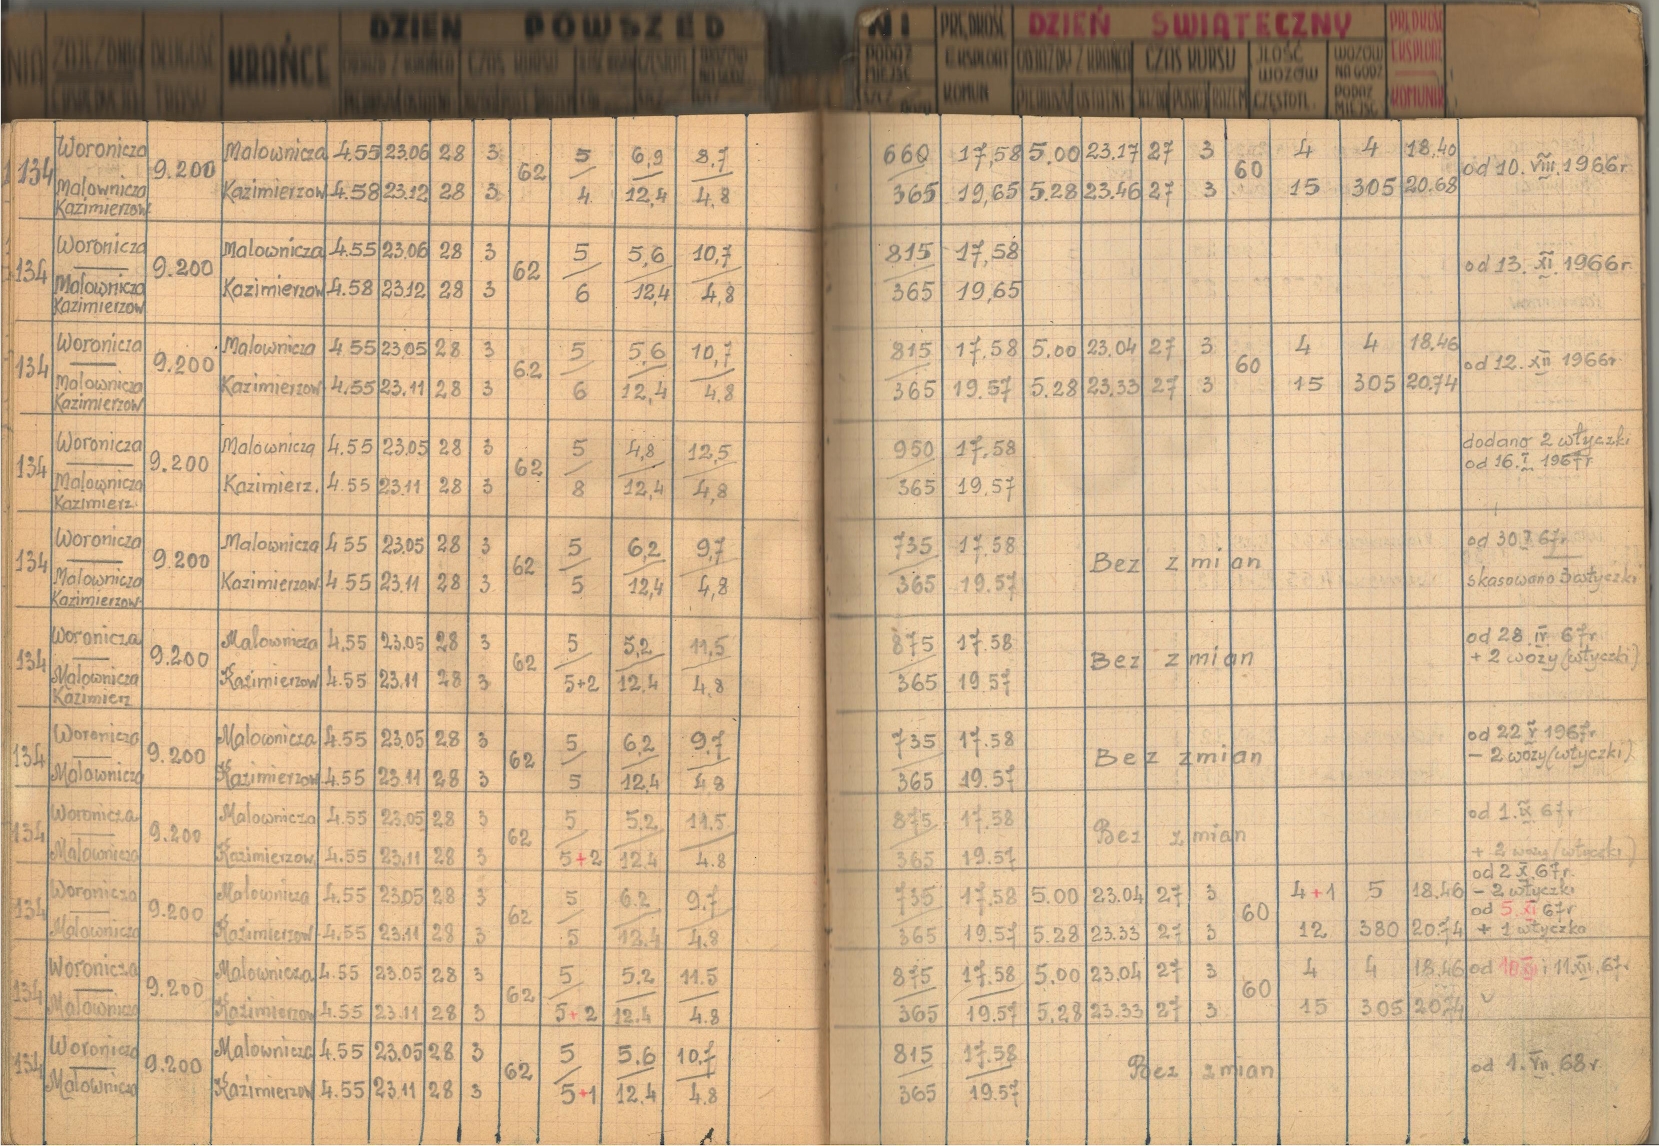 DZIEŃ POWSZEDNI PRĘDKOŚĆ DZIEŃ ŚWIĄTECZNY PRĘDKOŚĆ
KRAŃCE
PODAŻ MIEJSC EKSPLOAT ODJAZDY Z KRAŃCA CZAS KURSU ILOŚĆ WOZÓW WOZÓW NA GODZ EKSPLOAT
KOMUN PIERWSZY OSTATNI CZĘSTOTL. PODAŻ MIEJSC KOMUNIK
134 Woronicza 9.200 Malownicza 4.55 23.06 28 3 62 5 6,9 8,7 660 17,58 5.00 23.17 27 3 60 4 4 18.40 od 10. VIII. 1966r.
Malownicza Kazimierzow 4.58 23.12 28 3 4 12,4 4.8 365 19,65 5.28 23.46 27 3 15 305 20.68
Kazimierzow
134 Woronicza 9.200 Malownicza 4.55 23.06 28 3 62 5 5,6 10,7 815 17,58 od 13. XI 1966r
Malownicza Kazimierzow 4.58 23.12 28 3 6 12,4 4,8 365 19,65
Kazimierzow
134 Woronicza 9.200 Malownicza 4.55 23.05 28 3 62 5 5,6 10,7 815 17.58 5.00 23.04 27 3 60 4 4 18.46 od 12. XII 1966r
Malownicza Kazimierzow 4.55 23.11 28 3 6 12,4 4.8 365 19.57 5.28 23.33 27 3 15 305 20.74
Kazimierzow
134 Woronicza 9.200 Malownicza 4.55 23.05 28 3 62 5 4,8 12,5 950 17.58 dodano 2 wtyczki
Malownicza Kazimierz. 4.55 23.11 28 3 8 12,4 4,8 365 19.57 od 16. I 1967r
Kazimierz.
134 Woronicza 9.200 Malownicza 4.55 23.05 28 3 62 5 6,2 9,7 735 17.58 Bez zmian od 30 I 67r.
Malownicza Kazimierzow 4.55 23.11 28 3 5 12,4 4,8 365 19.57 skasowano 3 wtyczki
Kazimierzow
134 Woronicza 9.200 Malownicza 4.55 23.05 28 3 62 5 5,2 11,5 875 17.58 Bez zmian od 28 IV 67r
Malownicza Kazimierzow 4.55 23.11 28 3 5+2 12,4 4.8 365 19.57 + 2 wozy (wtyczki)
Kazimierz
134 Woronicza 9.200 Malownicza 4.55 23.05 28 3 62 5 6,2 9.7 735 17.58 Bez zmian od 22 V 1967r
Malownicza Kazimierzow 4.55 23.11 28 3 5 12,4 4.8 365 19.57 - 2 wozy (wtyczki)
134 Woronicza 9.200 Malownicza 4.55 23.05 28 3 62 5 5,2 11,5 875 17.58 Bez zmian od 1. IX 67r
Malownicza Kazimierzow. 4.55 23.11 28 3 5+2 12,4 4.8 365 19.57 + 2 wozy (wtyczki)
134 Woronicza 9.200 Malownicza 4.55 23.05 28 3 62 5 6.2 9,7 735 17.58 5.00 23.04 27 3 60 4+1 5 18.46 od 2 X 67r. - 2 wtyczki
Malownicza Kazimierzow 4.55 23.11 28 3 5 12.4 4.8 365 19.57 5.28 23.33 27 3 12 380 20.74 od 5. XI 67r + 1 wtyczka
134 Woronicza 9.200 Malownicza 4.55 23.05 28 3 62 5 5.2 11.5 875 17.58 5.00 23.04 27 3 60 4 4 18.46 od i 11 XII. 67r
Malownicza Kazimierzow 4.55 23.11 28 3 5+2 12.4 4.8 365 19.57 5.28 23.33 27 3 15 305 20.74
134 Woronicza 9.200 Malownicza 4.55 23.05 28 3 62 5 5.6 10,7 815 17.58 Bez zmian od 1. VII 68r
Malownicza Kazimierzow 4.55 23.11 28 3 5+1 12.4 4.8 365 19.57